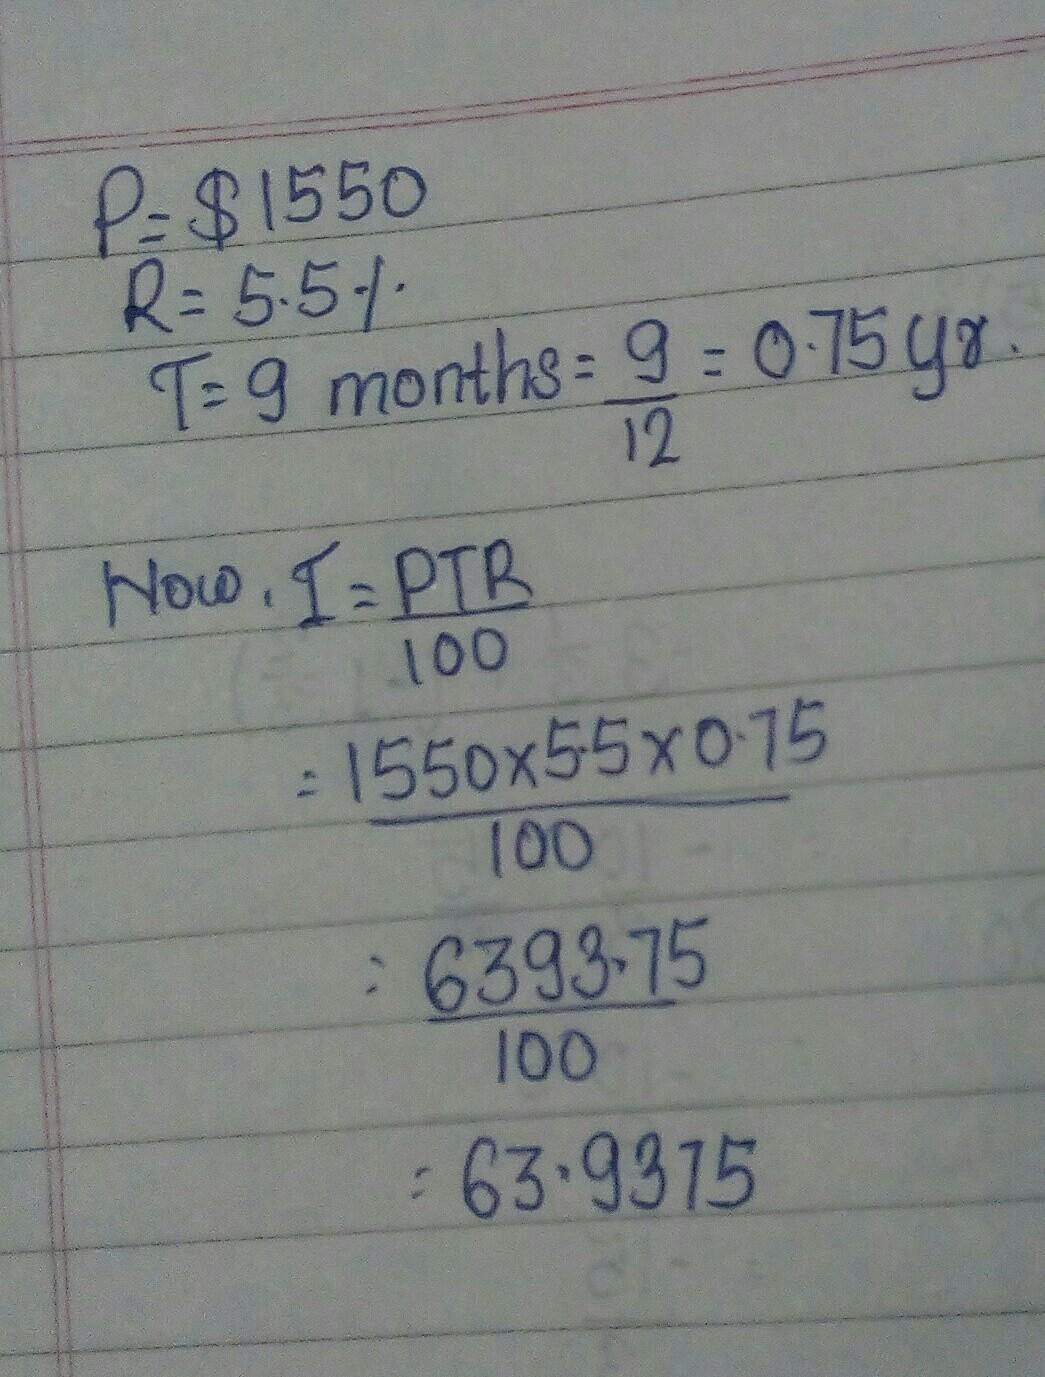 P= $1550
R= 5.5%
T= 9 months= 9/12 = 0.75 yr.
Now, I = PTR/100
= 1550x5.5x0.75/100
= 6393.75/100
= 63.9375